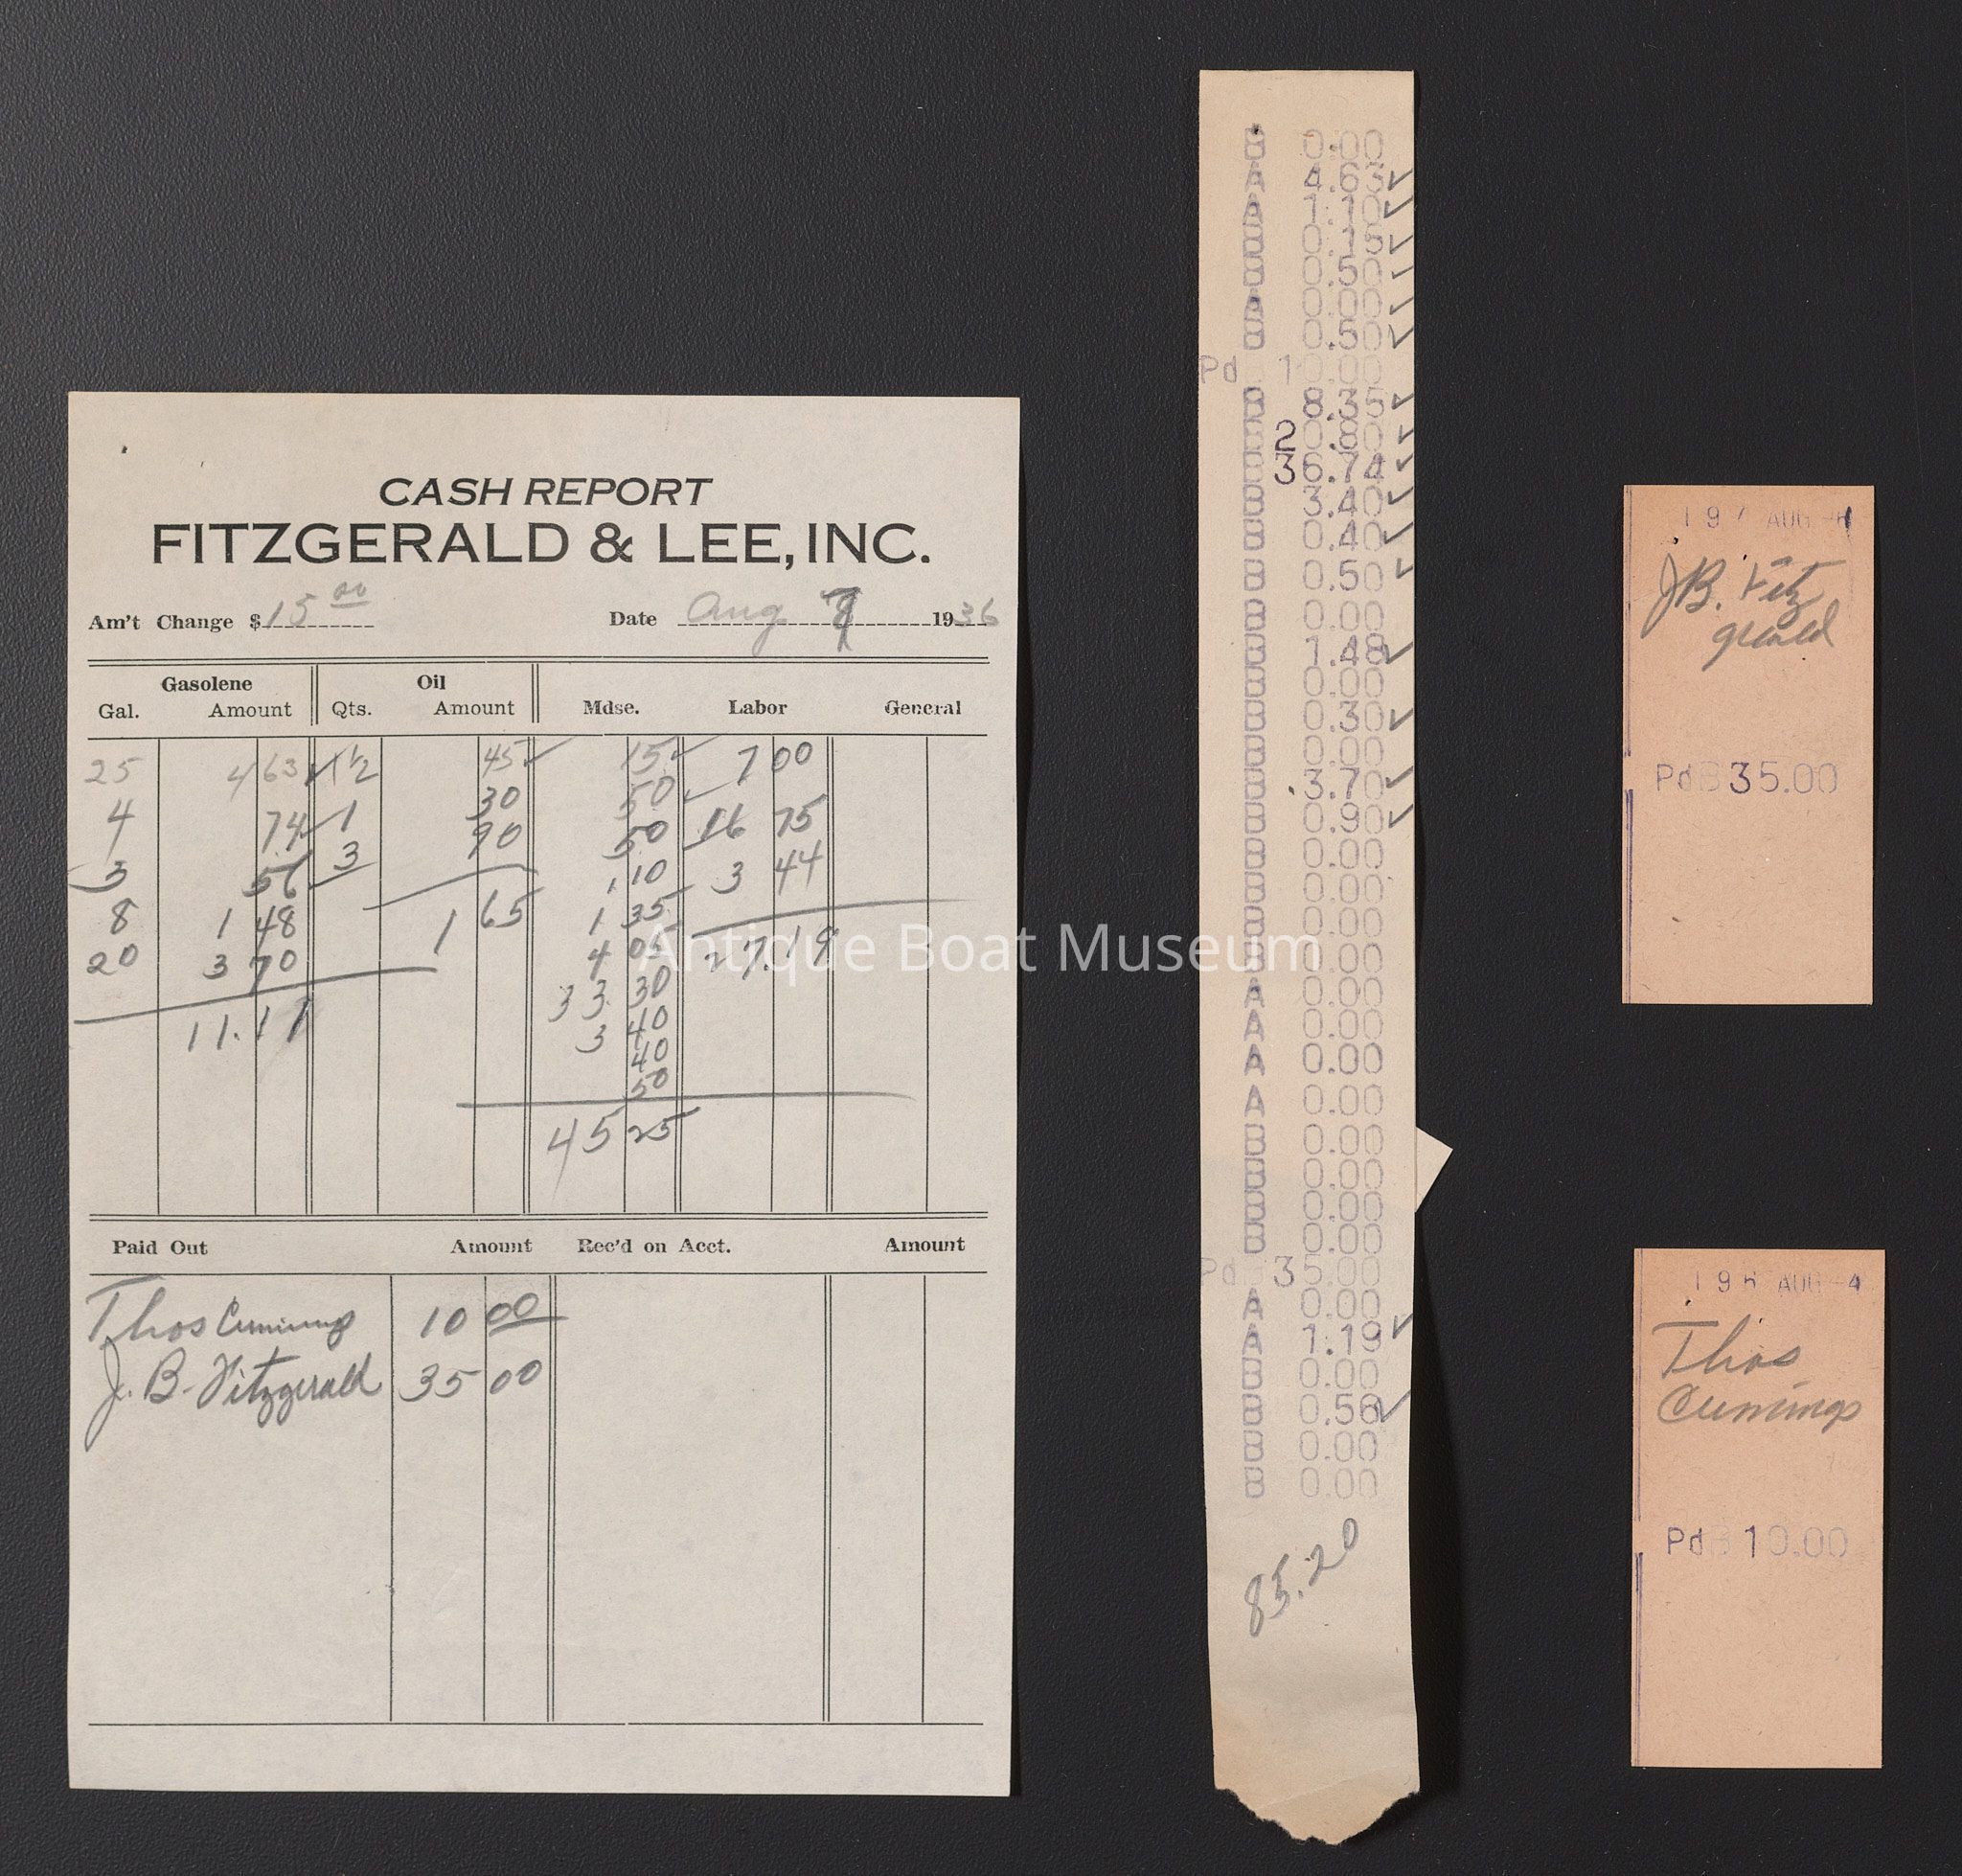 CASH REPORT
FITZGERALD & LEE, INC.
Am't Change $ 15 00 Date Aug 7 1936
Gasolene Oil
Gal. Amount Qts. Amount Mdse. Labor General
25 4 63 1½ 45 15 7 00
4 74 1 30 50 16 75
3 56 3 90 50 3 44
8 1 48 1 65 1 10 27.19
20 3 70 1 35
11.11 4 05
33 30
3 40
40
50
45 25
Paid Out Amount Rec'd on Acct. Amount
Thos Cummings 10 00
J. B. Fitzgerald 35 00
Antique Boat Museum
B 0.00
A 4.63
A 1.10
B 0.15
B 0.50
A 0.00
B 0.50
Pd 10.00
B 8.35
B 20.80
B 36.74
B 3.40
B 0.40
B 0.50
B 0.00
B 1.48
B 0.00
B 0.30
B 0.00
B 3.70
B 0.90
B 0.00
B 0.00
B 0.00
B 0.00
A 0.00
A 0.00
A 0.00
A 0.00
B 0.00
B 0.00
B 0.00
B 0.00
Pd 35.00
A 0.00
A 1.19
B 0.00
B 0.56
B 0.00
B 0.00
85.20
197 AUG
J B. Fitz
gerald
Pd B 35.00
196 AUG -4
Thos
Cummings
Pd B 10.00